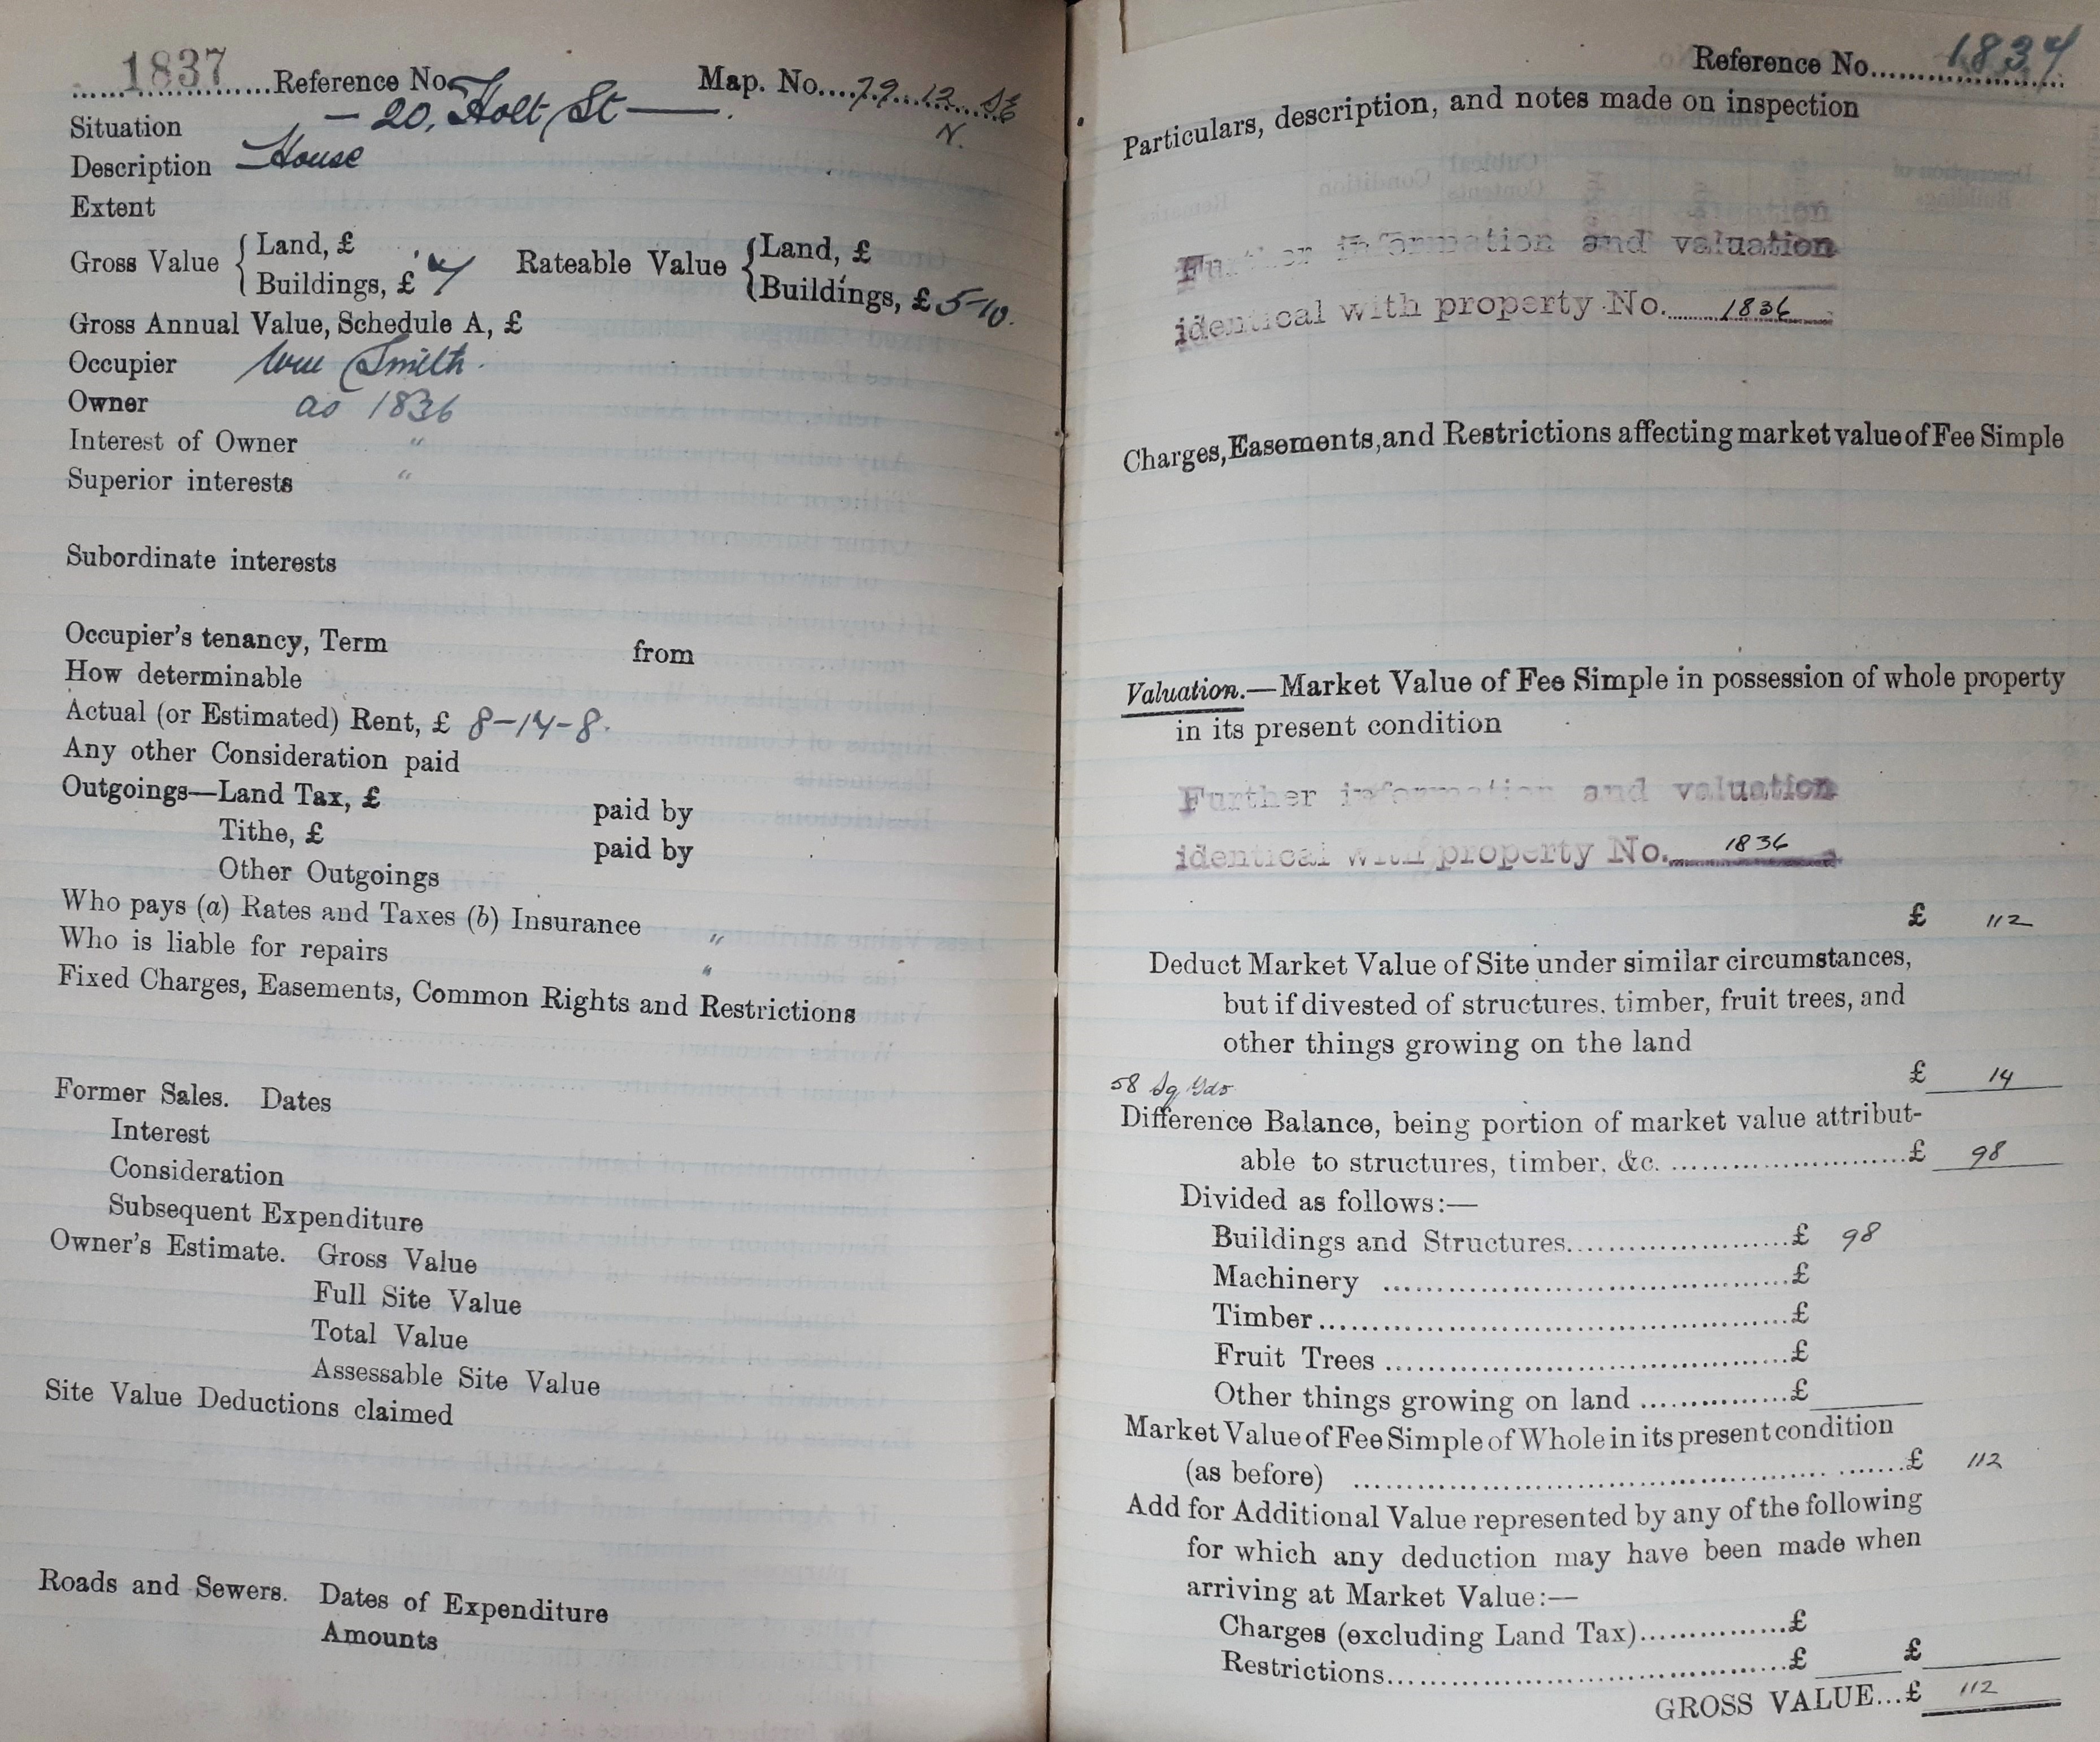 1837 Reference No. Map. No. 79.12 SE
N.
Situation — 20, Holt St —
Description House
Extent
Gross Value { Land, £ Rateable Value { Land, £
Buildings, £ 7 Buildings, £ 5-10.
Gross Annual Value, Schedule A, £
Occupier Wm Smith.
Owner as 1836
Interest of Owner "
Superior interests "
Subordinate interests
Occupier's tenancy, Term from
How determinable
Actual (or Estimated) Rent, £ 8-14-8.
Any other Consideration paid
Outgoings—Land Tax, £ paid by
Tithe, £ paid by
Other Outgoings
Who pays (a) Rates and Taxes (b) Insurance "
Who is liable for repairs "
Fixed Charges, Easements, Common Rights and Restrictions
Former Sales. Dates
Interest
Consideration
Subsequent Expenditure
Owner's Estimate. Gross Value
Full Site Value
Total Value
Assessable Site Value
Site Value Deductions claimed
Roads and Sewers. Dates of Expenditure
Amounts
Reference No. 1837
Particulars, description, and notes made on inspection
Further information and valuation
identical with property No. 1836
Charges, Easements, and Restrictions affecting market value of Fee Simple
Valuation.—Market Value of Fee Simple in possession of whole property
in its present condition
Further information and valuation
identical with property No. 1836
£ 112
Deduct Market Value of Site under similar circumstances,
but if divested of structures, timber, fruit trees, and
other things growing on the land
58 Sq Yds £ 14
Difference Balance, being portion of market value attribut-
able to structures, timber, &c. £ 98
Divided as follows:—
Buildings and Structures £ 98
Machinery £
Timber £
Fruit Trees £
Other things growing on land £
Market Value of Fee Simple of Whole in its present condition
(as before) £ 112
Add for Additional Value represented by any of the following
for which any deduction may have been made when
arriving at Market Value:—
Charges (excluding Land Tax) £
Restrictions £ £
GROSS VALUE...£ 112